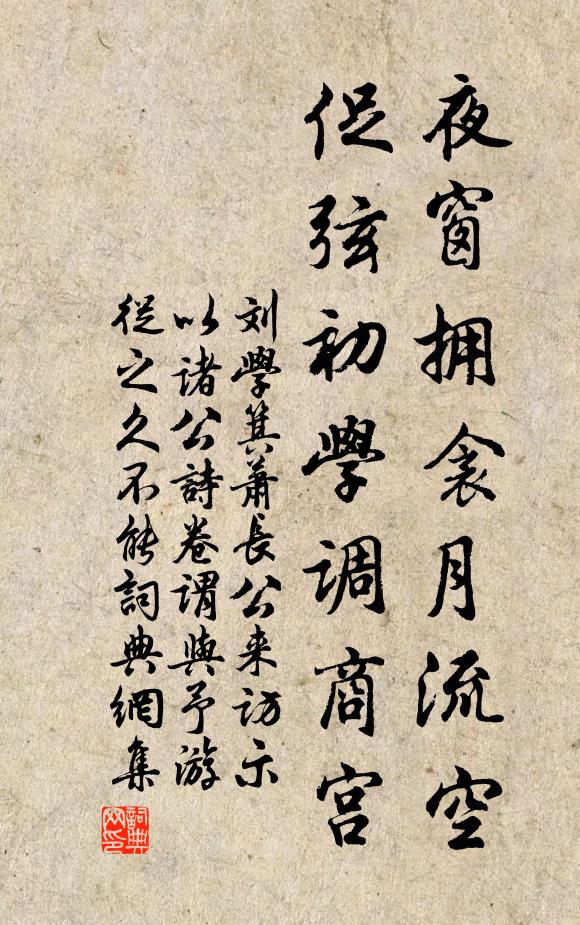 夜窗拥衾月流空
促弦初學調商宫
刘學箕蕭長公来访示
以诸公詩卷谓與予游
從之久不能詞典網集
詞典网印